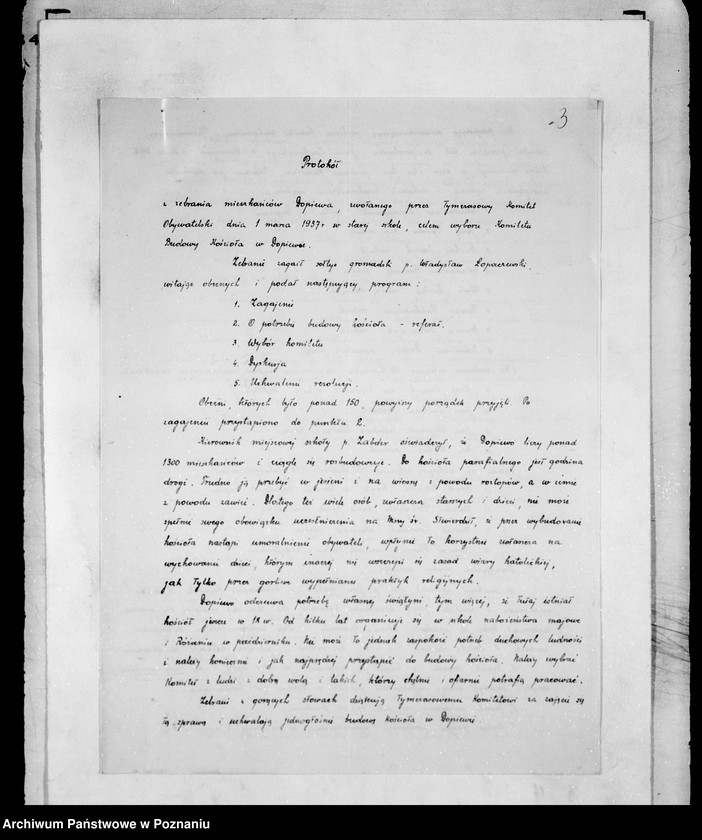 3
Protokół
z zebrania mieszkańców Dopiewa, zwołanego przez Tymczasowy Komitet
Obywatelski dnia 1 marca 1937 r w starej szkole, celem wyboru Komitetu
Budowy Kościoła w Dopiewie.
Zebranie zagaił sołtys gromadzki p. Władysław
witając obecnych i podał następujący program:
1. Zagajenie
2. O potrzebie budowy kościoła - referat.
3. Wybór komitetu
4. Dyskusja
5. Uchwalenie rezolucji.
Obecni, których było ponad 150, powyższy porządek przyjęli. Po
zagajeniu przystąpiono do punktu 2.
Kierownik miejscowej szkoły p. oświadczył, że Dopiewo liczy ponad
1300 mieszkańców i ciągle się rozbudowuje. Do kościoła parafialnego jest godzina
drogi. Trudno ją przebyć w jesieni i na wiosnę z powodu roztopów, a w zimie
z powodu zawiei. Dlatego też wiele osób, zwłaszcza starszych i dzieci, nie może
spełnić swego obowiązku uczestniczenia na Mszy św. Stwierdził, że przez wybudowanie
kościoła nastąpi umoralnienie obywateli, wpłynie to korzystnie zwłaszcza na
wychowanie dzieci, którym inaczej nie wszczepi się zasad wiary katolickiej,
jak tylko przez gorliwe wypełnianie praktyk religijnych.
Dopiewo odczuwa potrzebę własnej świątyni, tym więcej, że tutaj istniał
kościół jeszcze w 18 w. Od kilku lat organizuje się w szkole nabożeństwa majowe
i Różańcu w październiku. Nie może to jednak zaspokoić potrzeb duchowych ludności
i należy koniecznie i jak najprędzej przystąpić do budowy kościoła. Należy wybrać
Komitet z ludzi z dobrą wolą i takich, którzy chętnie i ofiarnie potrafią pracować.
Zebrani w gorących słowach dziękują Tymczasowemu Komitetowi za zajęcie się
tą sprawą i uchwalają jednogłośnie budowę kościoła w Dopiewie.
Archiwum Państwowe w Poznaniu